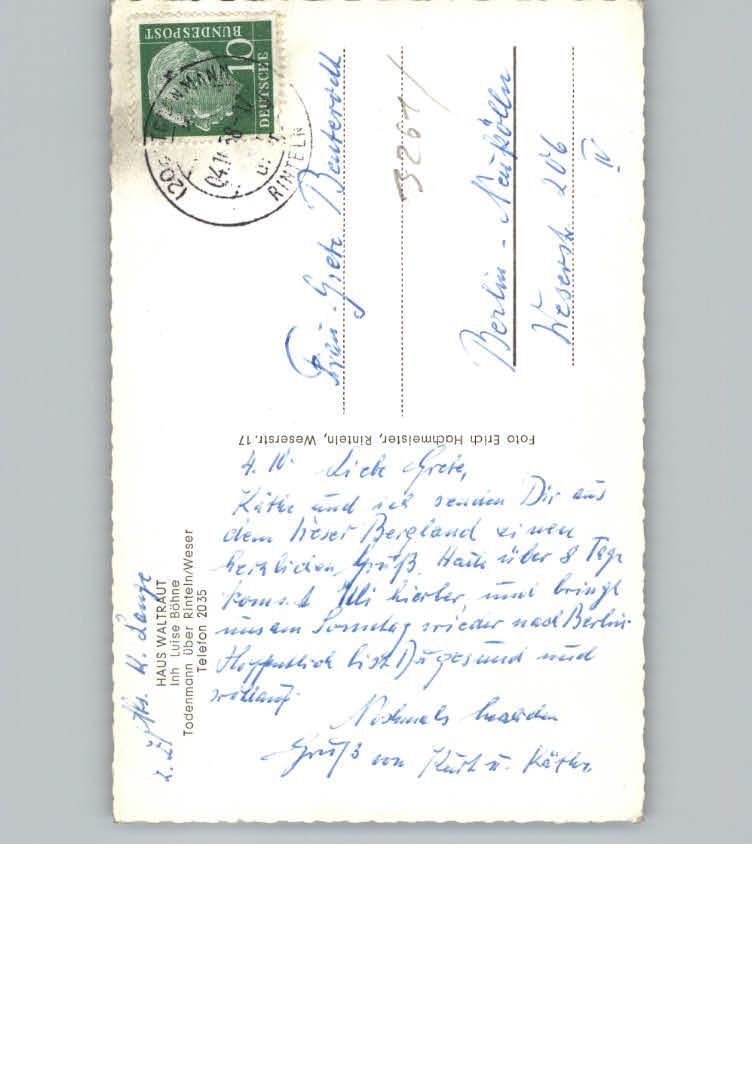 HAUS WALTRAUT
Inh Luise Böhne
Todenmann über Rinteln/Weser
Telefon 2035
z. Zt. K. Lange
4. IV. Liebe Grete,
Käthe und ich senden Dir aus
dem Weser Bergland einen
herzlichen Gruß. Heute über 8 Tage
kommt Uli hierher und bringt
uns am Sonntag wieder nach Berlin.
Hoffentlich bist Du gesund und
wohlauf.
Nochmals
Gruß von Kurt u. Käthe
Foto Erich Hachmeister, Rinteln, Weserstr. 17
DEUTSCHE
BUNDESPOST
10
(20
RINTELN
Frau Grete Beuterodt
3201/
Berlin - Neukölln
Weserstr. 206
IV